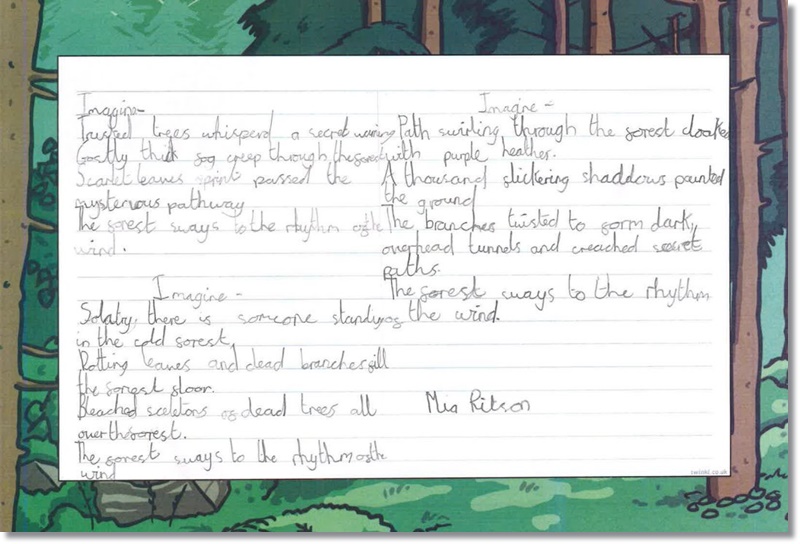 Imagine-
trees whisperd a secret warning
Gostly thick fog creep through, the forest
Scarlet leaves sprint passed the
mysterious pathway
The forest sways to the rhythm of the
wind.
Imagine -
Solatry, there is someone standying
in the cold forest,
Rotting leaves and dead branches fill
the forest floor.
Bleached sceletons of dead trees all
over the forest.
The forest sways to the rhythm of the
wind
Imagine -
Path swirling through the forest cloaked
with purple heather.
A thousand flickering shaddows paunted
the ground
The branches twisted to form dark,
overhead tunnels and creached secret
paths.
The forest sways to the rhythm
of the wind.
Mia Ritson
twinkl.co.uk